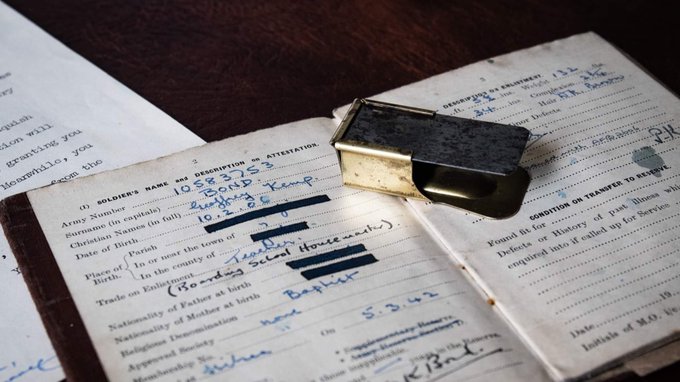 quish
tion will
granting you
Meanwhile, you
from the
2
(I) SOLDIER'S NAME AND DESCRIPTION ON ATTESTATION.
Army Number 10583753
Surname (in capitals) BOND
Christian Names (in full) Geoffrey Kemp
Date of Birth 10.2.06
Place of Birth. Parish
In or near the town of
In the county of
Trade on Enlistment Teacher
(Boarding School Housemaster)
Nationality of Father at birth
Nationality of Mother at birth
Religious Denomination Baptist
Approved Society none
Membership No.
5.3.42
Supplementary Reserve
Army Reserve
those inapplicable. years in the Reserve
K Bond.
3
DESCRIPTION ON ENLISTMENT
ins. Weight 132
ins. Complexion
34 Hair
Defects
PK
CONDITION ON TRANSFER TO RESERVE
Found fit for
Defects or History of past Illness which
enquired into if called up for Service
Date 19
Initials of M.O. i/c